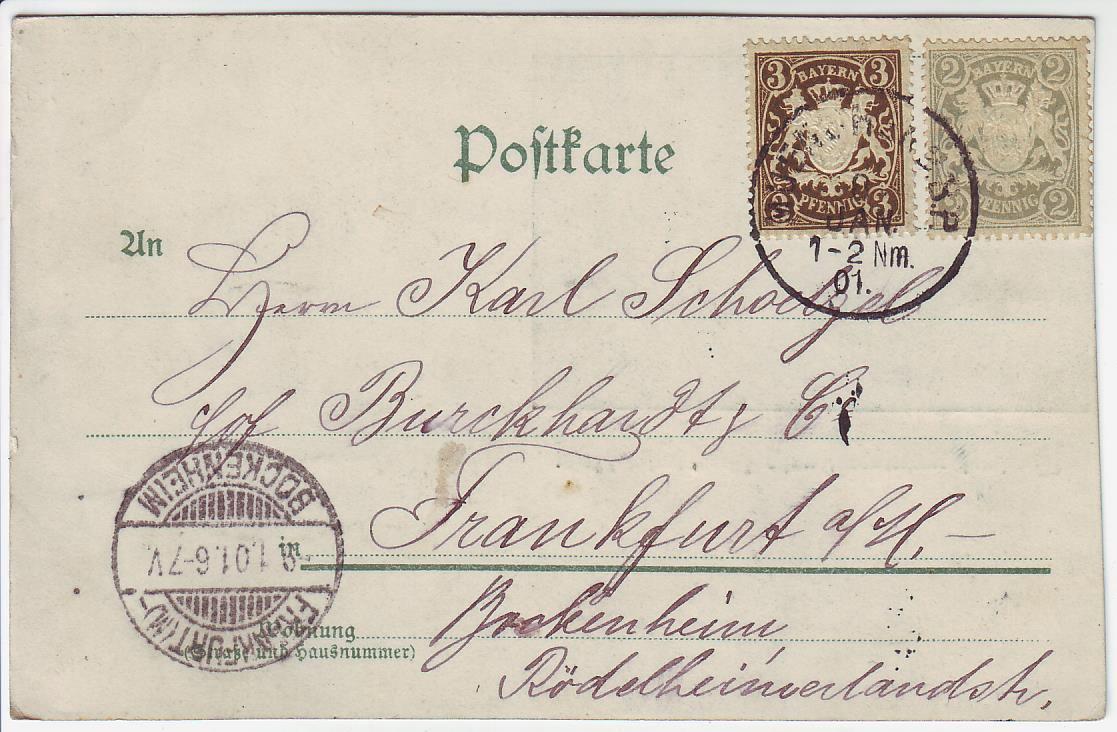 3 BAYERN 3
3 PFENNIG 3
2 BAYERN 2
2 PFENNIG 2
JAN.
1-2 Nm.
01.
Postkarte
An
Herrn Karl
Burckhardt & Cº
Frankfurt a/M, –
in
Bockenheim
Wohnung
(Straße und Hausnummer)
Rödelheimerlandstr,
FRANKFURT (M)-
9.1.01.6-7V.
BOCKENHEIM